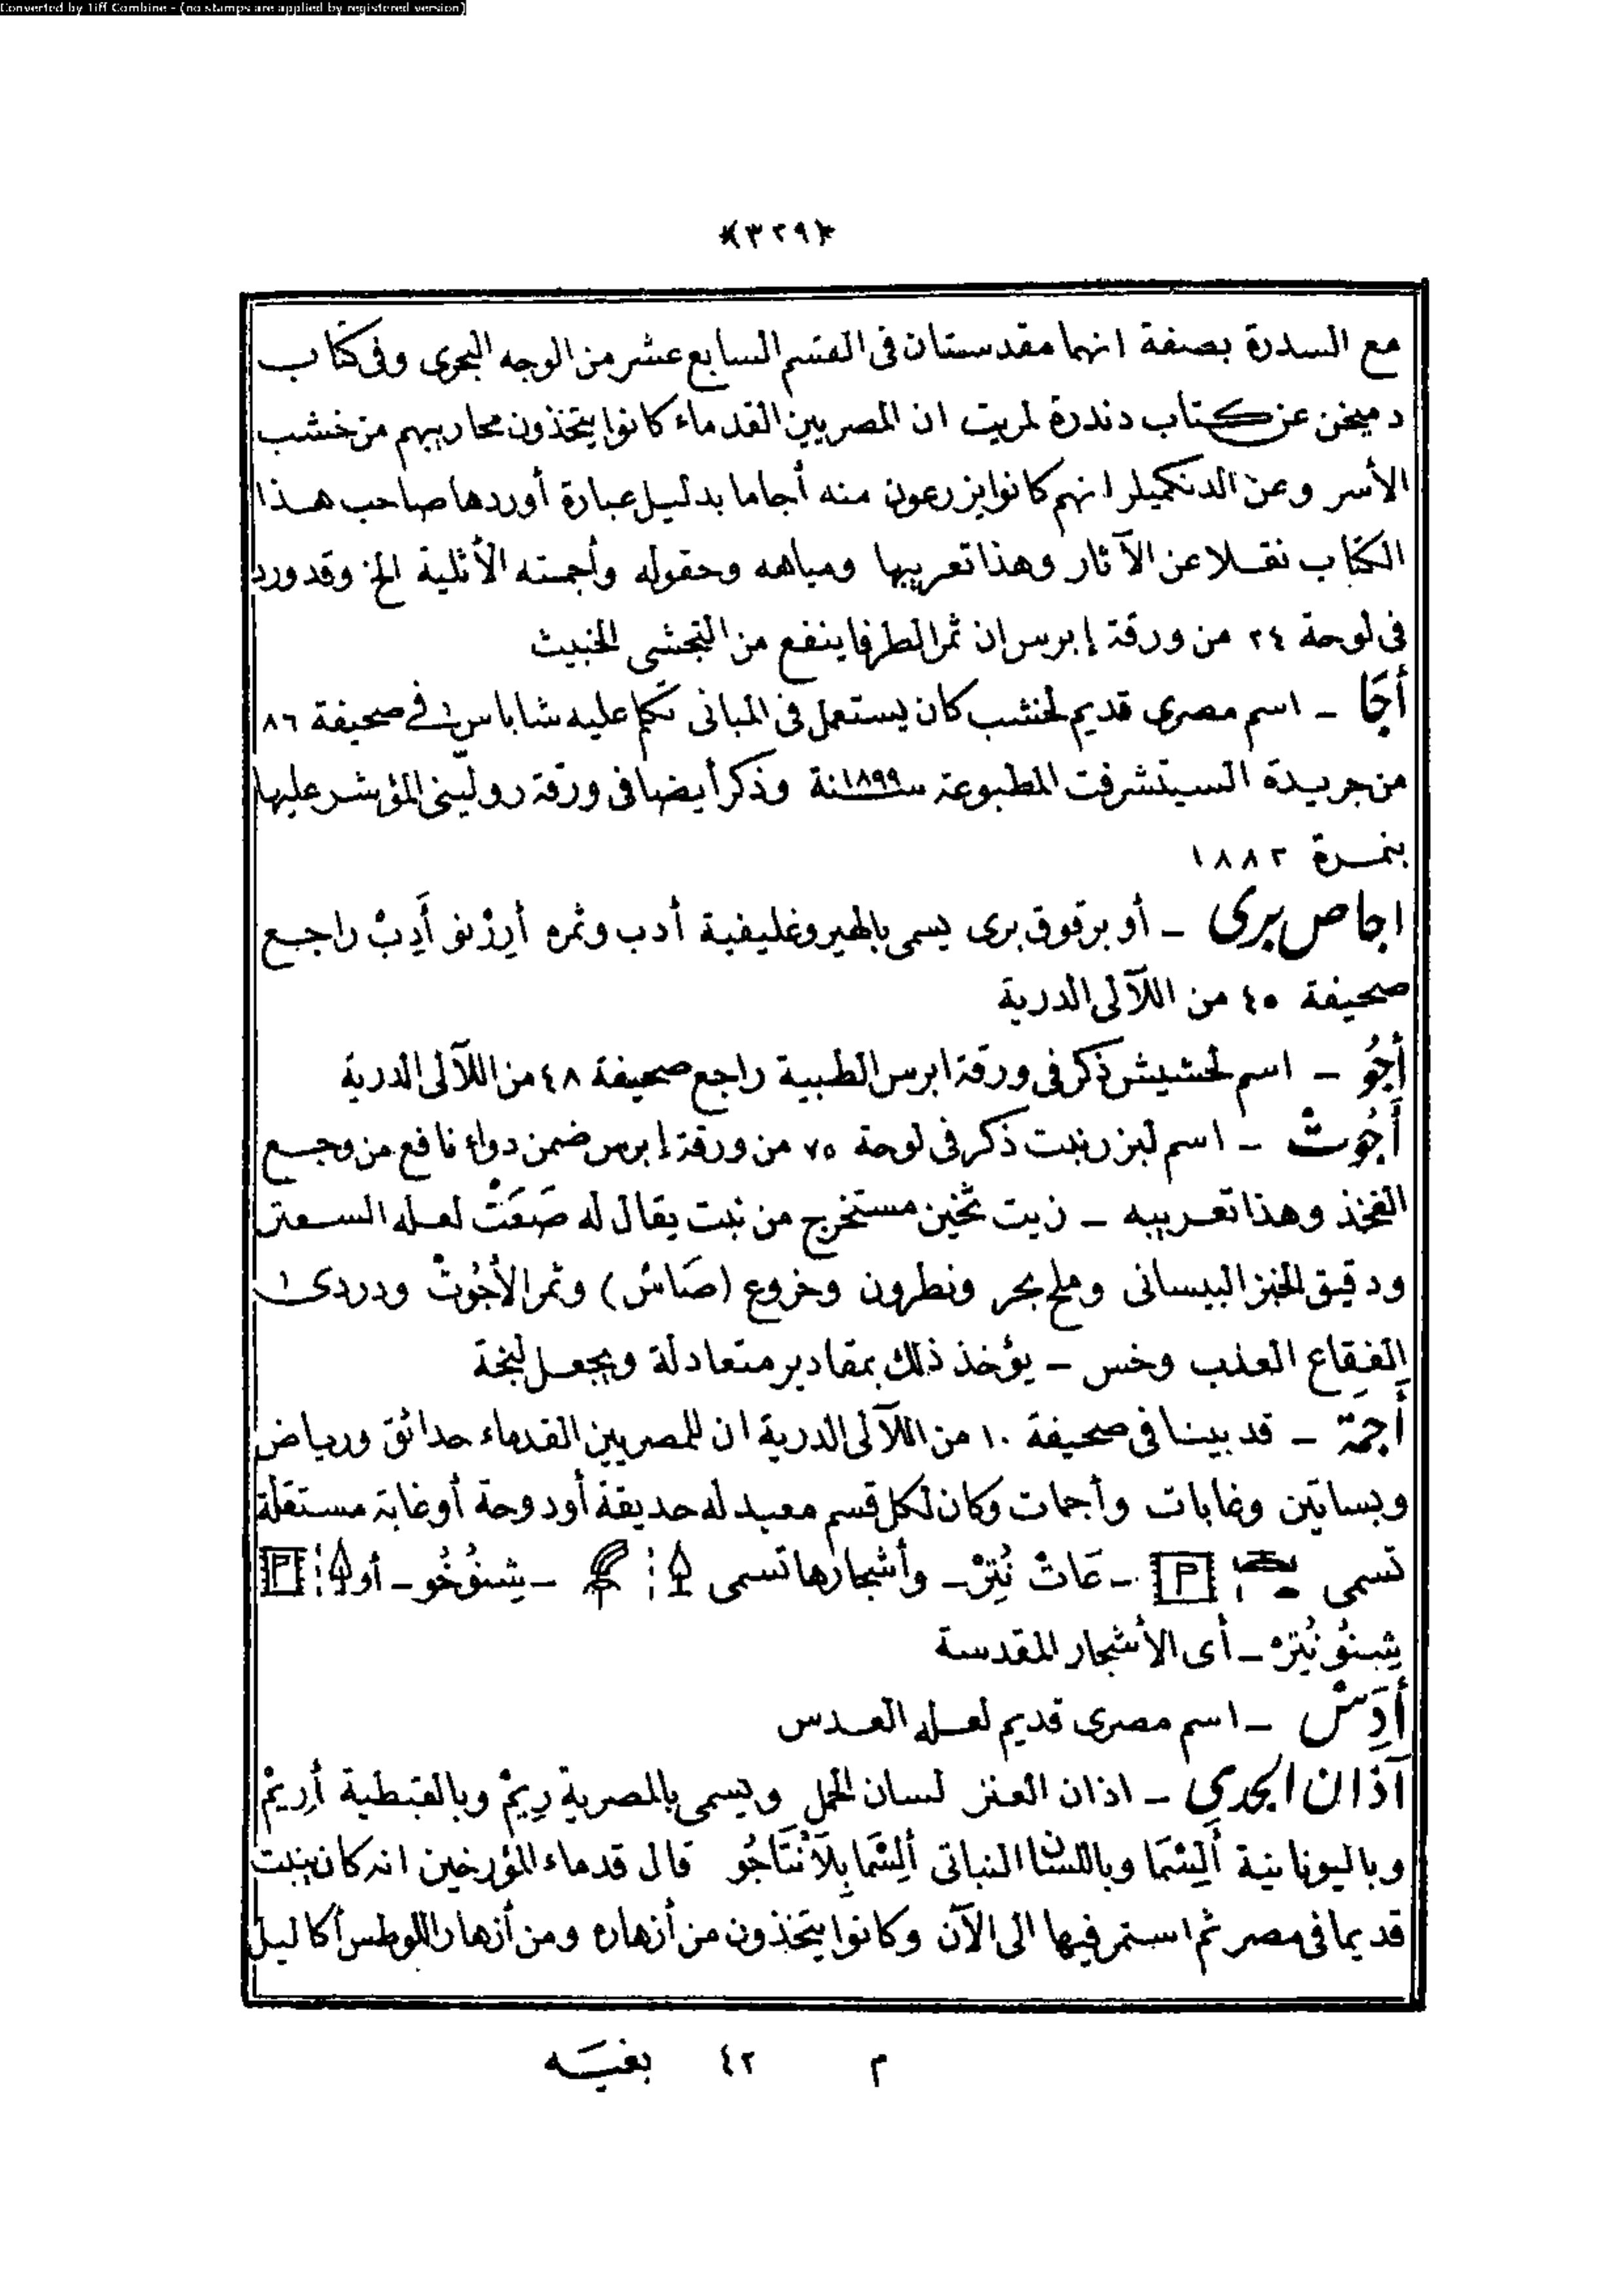 Converted by Tiff Combine - (no stamps are applied by registered version)
﴿٣٢٩﴾
مع السدرة بصفة انهما مقدستان فى القسم السابع عشر من الوجه البحرى وفى كتاب
دميخن عن كتاب دندرة لمريت ان المصريين القدماء كانوا يتخذون محاريبهم من خشب
الأسر وعن الدنكميلر انهم كانوا يزرعون منه أجاما بدليل عبارة أوردها صاحب هذا
الكتاب نقلا عن الآثار وهذا تعريبها ومياهه وحقوله وأجمته الأثلية الخ وقد ورد
فى لوحة ٢٤ من ورقة إبرس ان ثمر الطرفا ينفع من التجشى الخبيث
أَجَا ـ اسم مصرى قديم لخشب كان يستعمل فى المبانى تكلم عليه شاباس فى صحيفة ٨٦
من جريدة السيتشرفت المطبوعة سنة ١٨٩٩ وذكر أيضا فى ورقة رولينى المؤشر عليها
بنمرة ١٨٨٢
اجاص برى ـ أو برقوق برى يسمى بالهيروغليفية أدب وثمره أَرِزْنو أَدِبْ راجع
صحيفة ٤٥ من اللآلى الدرية
أَجُو ـ اسم لحشيش ذكر فى ورقة ابرس الطبية راجع صحيفة ٤٨ من اللآلى الدرية
أَجُوتْ ـ اسم لبزر نبت ذكر فى لوحة ٧٥ من ورقة إبرس ضمن دواء نافع من وجع
الفخذ وهذا تعريبه ـ زيت ثخين مستخرج من نبت يقال له صَعَتْ لعله السعتر
ودقيق الخبز البيسانى وملح بحر ونطرون وخروع (صَاسْ) وثمر الأَجُوتْ ودردى
الفقاع العذب وخس ـ يؤخذ ذلك بمقادير متعادلة ويجعل لبخة
أَجَمَة ـ قد بينا فى صحيفة ١٠ من اللآلى الدرية ان للمصريين القدماء حدائق ورياض
وبساتين وغابات وأجمات وكان لكل قسم معبد له حديقة أو دوحة أو غابة مستقلة
تسمى ـ عَاتْ نُتِرْ ـ وأشجارها تسمى ـ شِنوُخُو ـ أو
شِنوُ نُتِرْ ـ أى الأشجار المقدسة
أَدِسْ ـ اسم مصرى قديم لعله العدس
آذان الجدى ـ اذان العنز لسان الحمل ويسمى بالمصرية رِيمْ وبالقبطية أَرِيمْ
وباليونانية أَلِشْمَا وباللسان النباتى أَلِشْمَا بِلَانْتَاجُو قال قدماء المؤرخين انه كان ينبت
قديما فى مصر ثم استمر فيها الى الآن وكانوا يتخذون من أزهاره ومن أزهار اللوطس أكاليل
م ٤٢ بغيــه